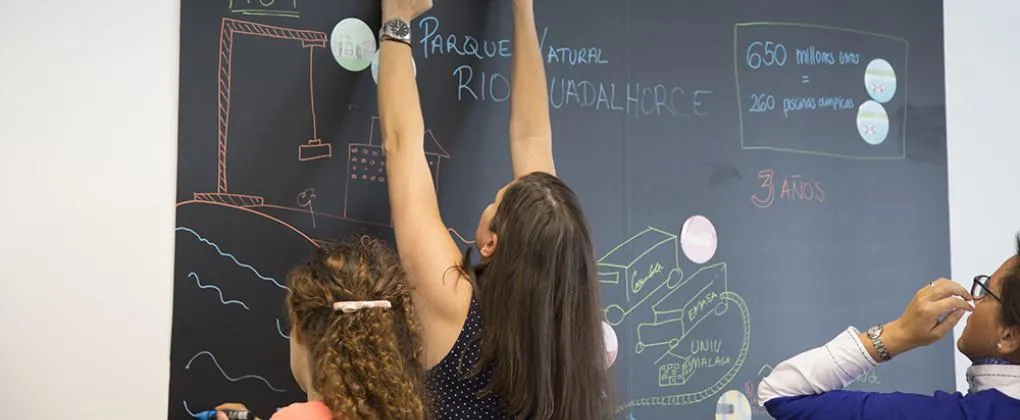 PARQUE NATURAL
RIO GUADALHORCE
650 millones litros
=
260 piscinas olimpicas
3 AÑOS
EMASA
UNIV
MALAGA